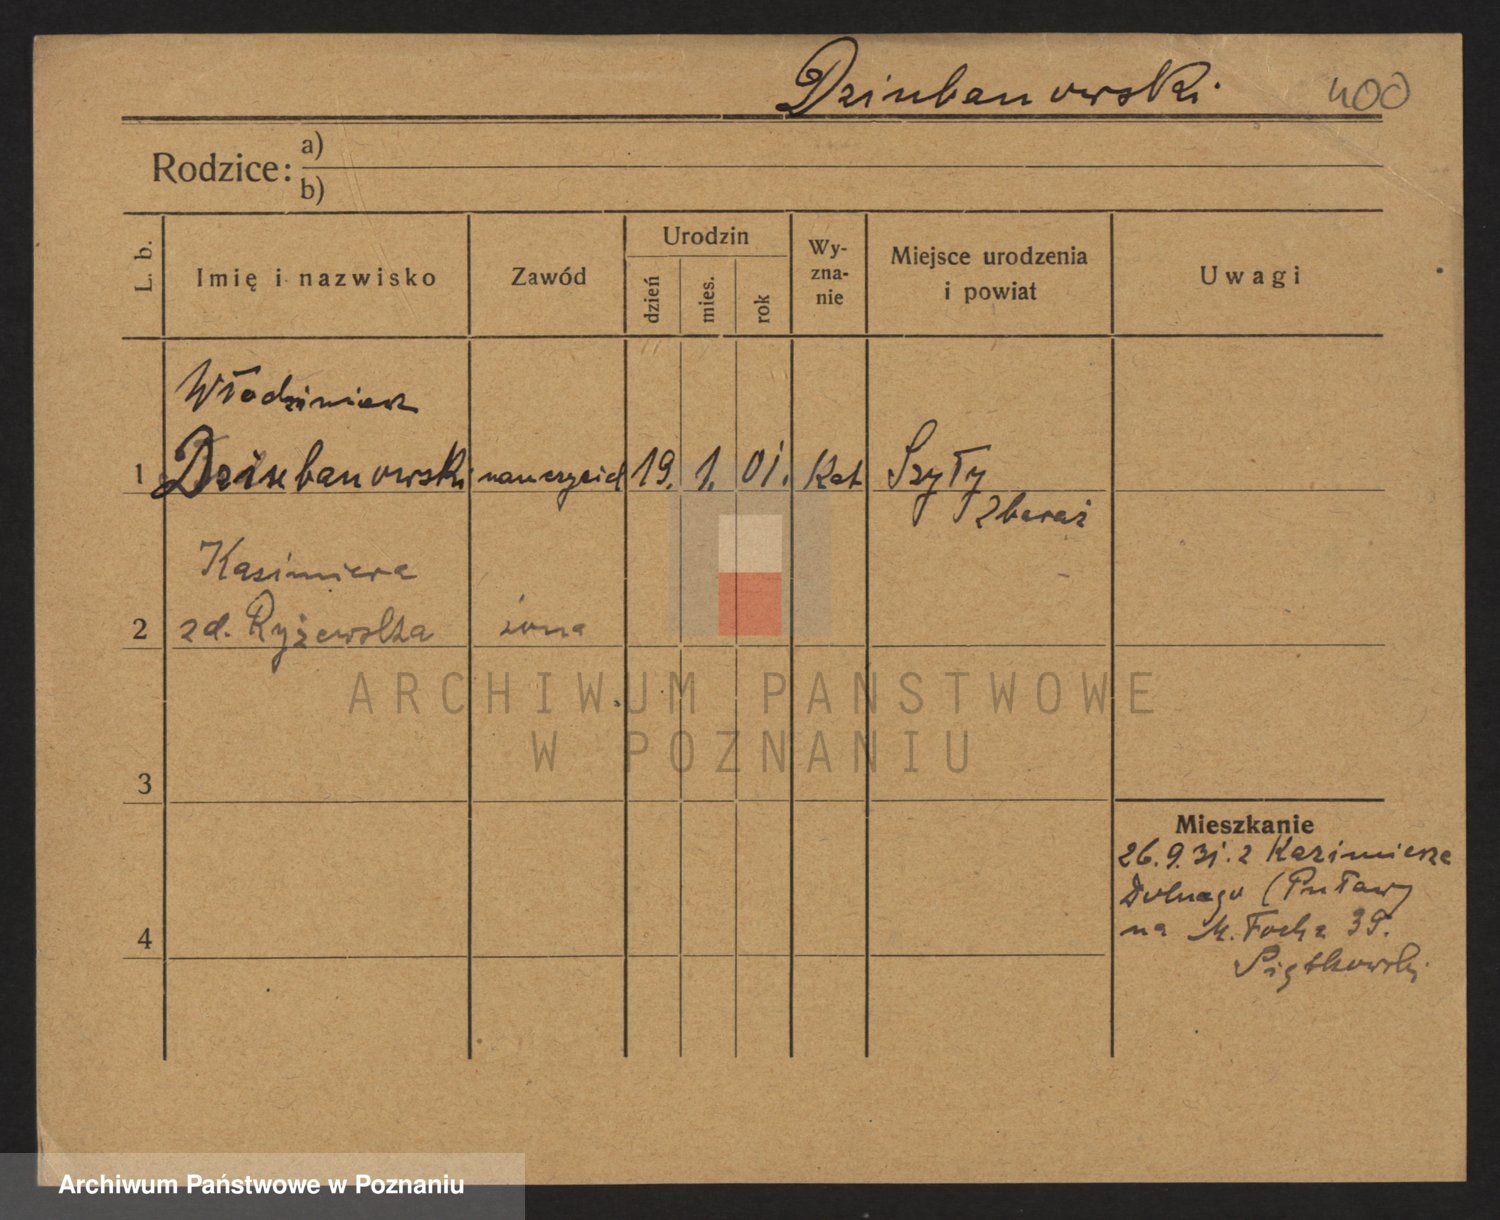 Dziubanowski 400
Rodzice: a)
b)
L. b. Imię i nazwisko Zawód Urodzin Wy-zna-nie Miejsce urodzenia i powiat Uwagi
dzień mies. rok
Włodzimierz
1 Dziubanowski nauczyciel 19. 1. 01. Kat Szyły
Zbaraż
Kazimiera
2 zd. Ryżewska żona
ARCHIWUM PAŃSTWOWE
W POZNANIU
3
Mieszkanie
26.9.31. z Kazimierza
Dolnego (Puławy
4 na M. Focha 39.
Piątkowski
Archiwum Państwowe w Poznaniu